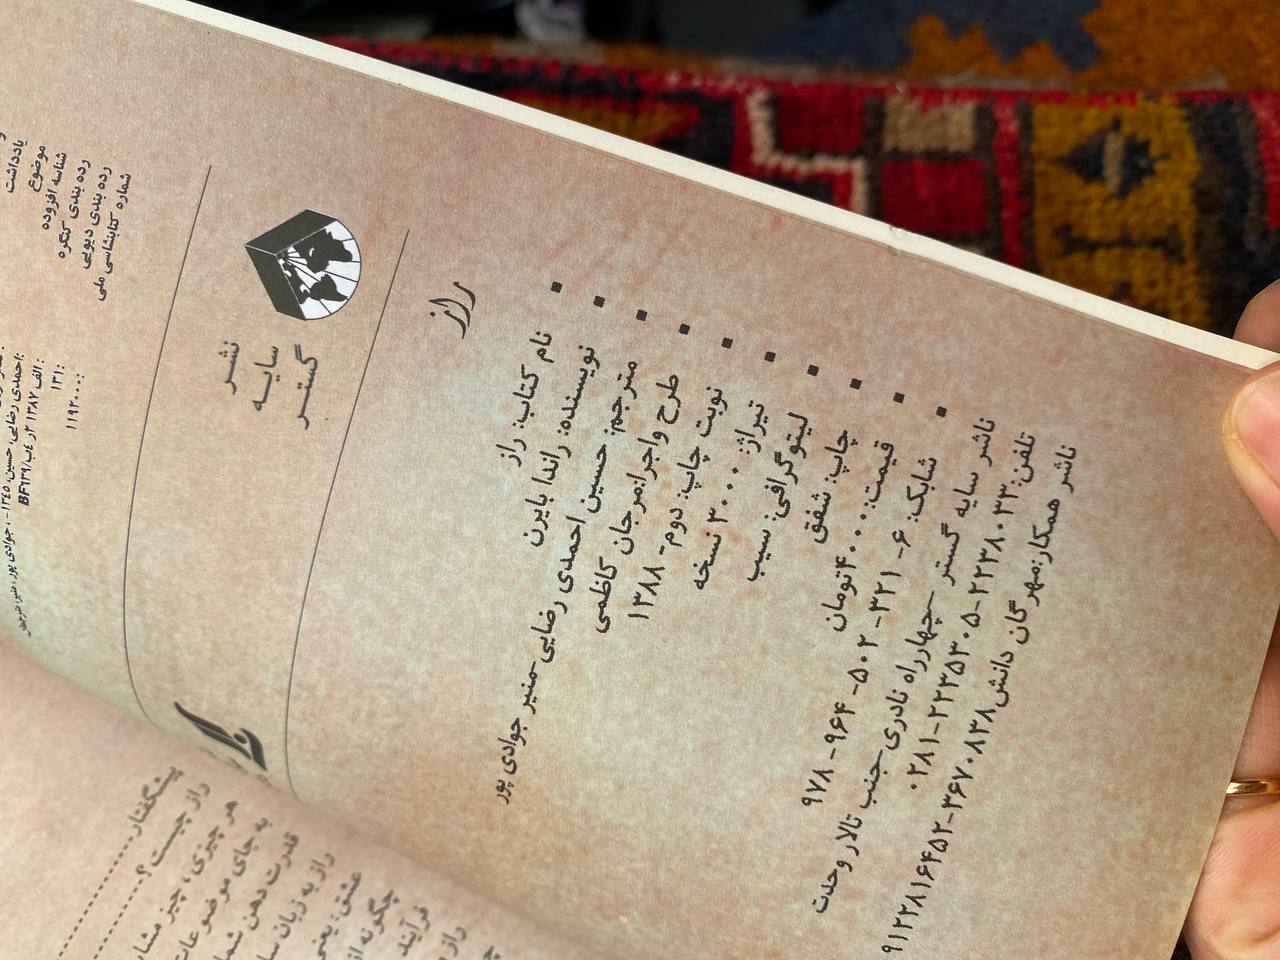 یادداشت
موضوع
شناسه افزوده : احمدی رضایی، حسین، ۱۳۴۵-، جوادی پور، منیر، مترجمان
رده بندی کنگره : BF۶۳۹/ب۴ر۲ ۱۳۸۷ الف
رده بندی دیویی : ۱۳۱
شماره کتابشناسی ملی : ۱۱۹۲۰۰۰
نشر
سایه
گستر
راز
▪ نام کتاب: راز
▪ نویسنده: راندا بایرن
▪ مترجم: حسین احمدی رضایی-منیر جوادی پور
▪ طرح واجرا:مرجان کاظمی
▪ نوبت چاپ: دوم- ۱۳۸۸
▪ تیراژ: ۳۰۰۰ نسخه
▪ لیتوگرافی: سیب
▪ چاپ: شفق
▪ قیمت:۴۰۰۰تومان
▪ شابک: ۶- ۳۲۱- ۵۰۲- ۹۶۴- ۹۷۸
ناشر سایه گستر -چهارراه نادری-جنب تالار وحدت
تلفن:۰۲۸۱-۲۲۳۵۳۰۵-۲۲۳۸۰۳۳
ناشر همکار:مهرگان دانش۳۶۷۰۸۳۸-۹۱۲۲۸۱۶۴۵۲
پیشگفتار
راز چیست؟
هر چیزی، چیز مشابه
به جای موضوعات
قدرت ذهن شما
راز به زبان سا
عشق: یعنی
چگونه از
فرآیند
راز